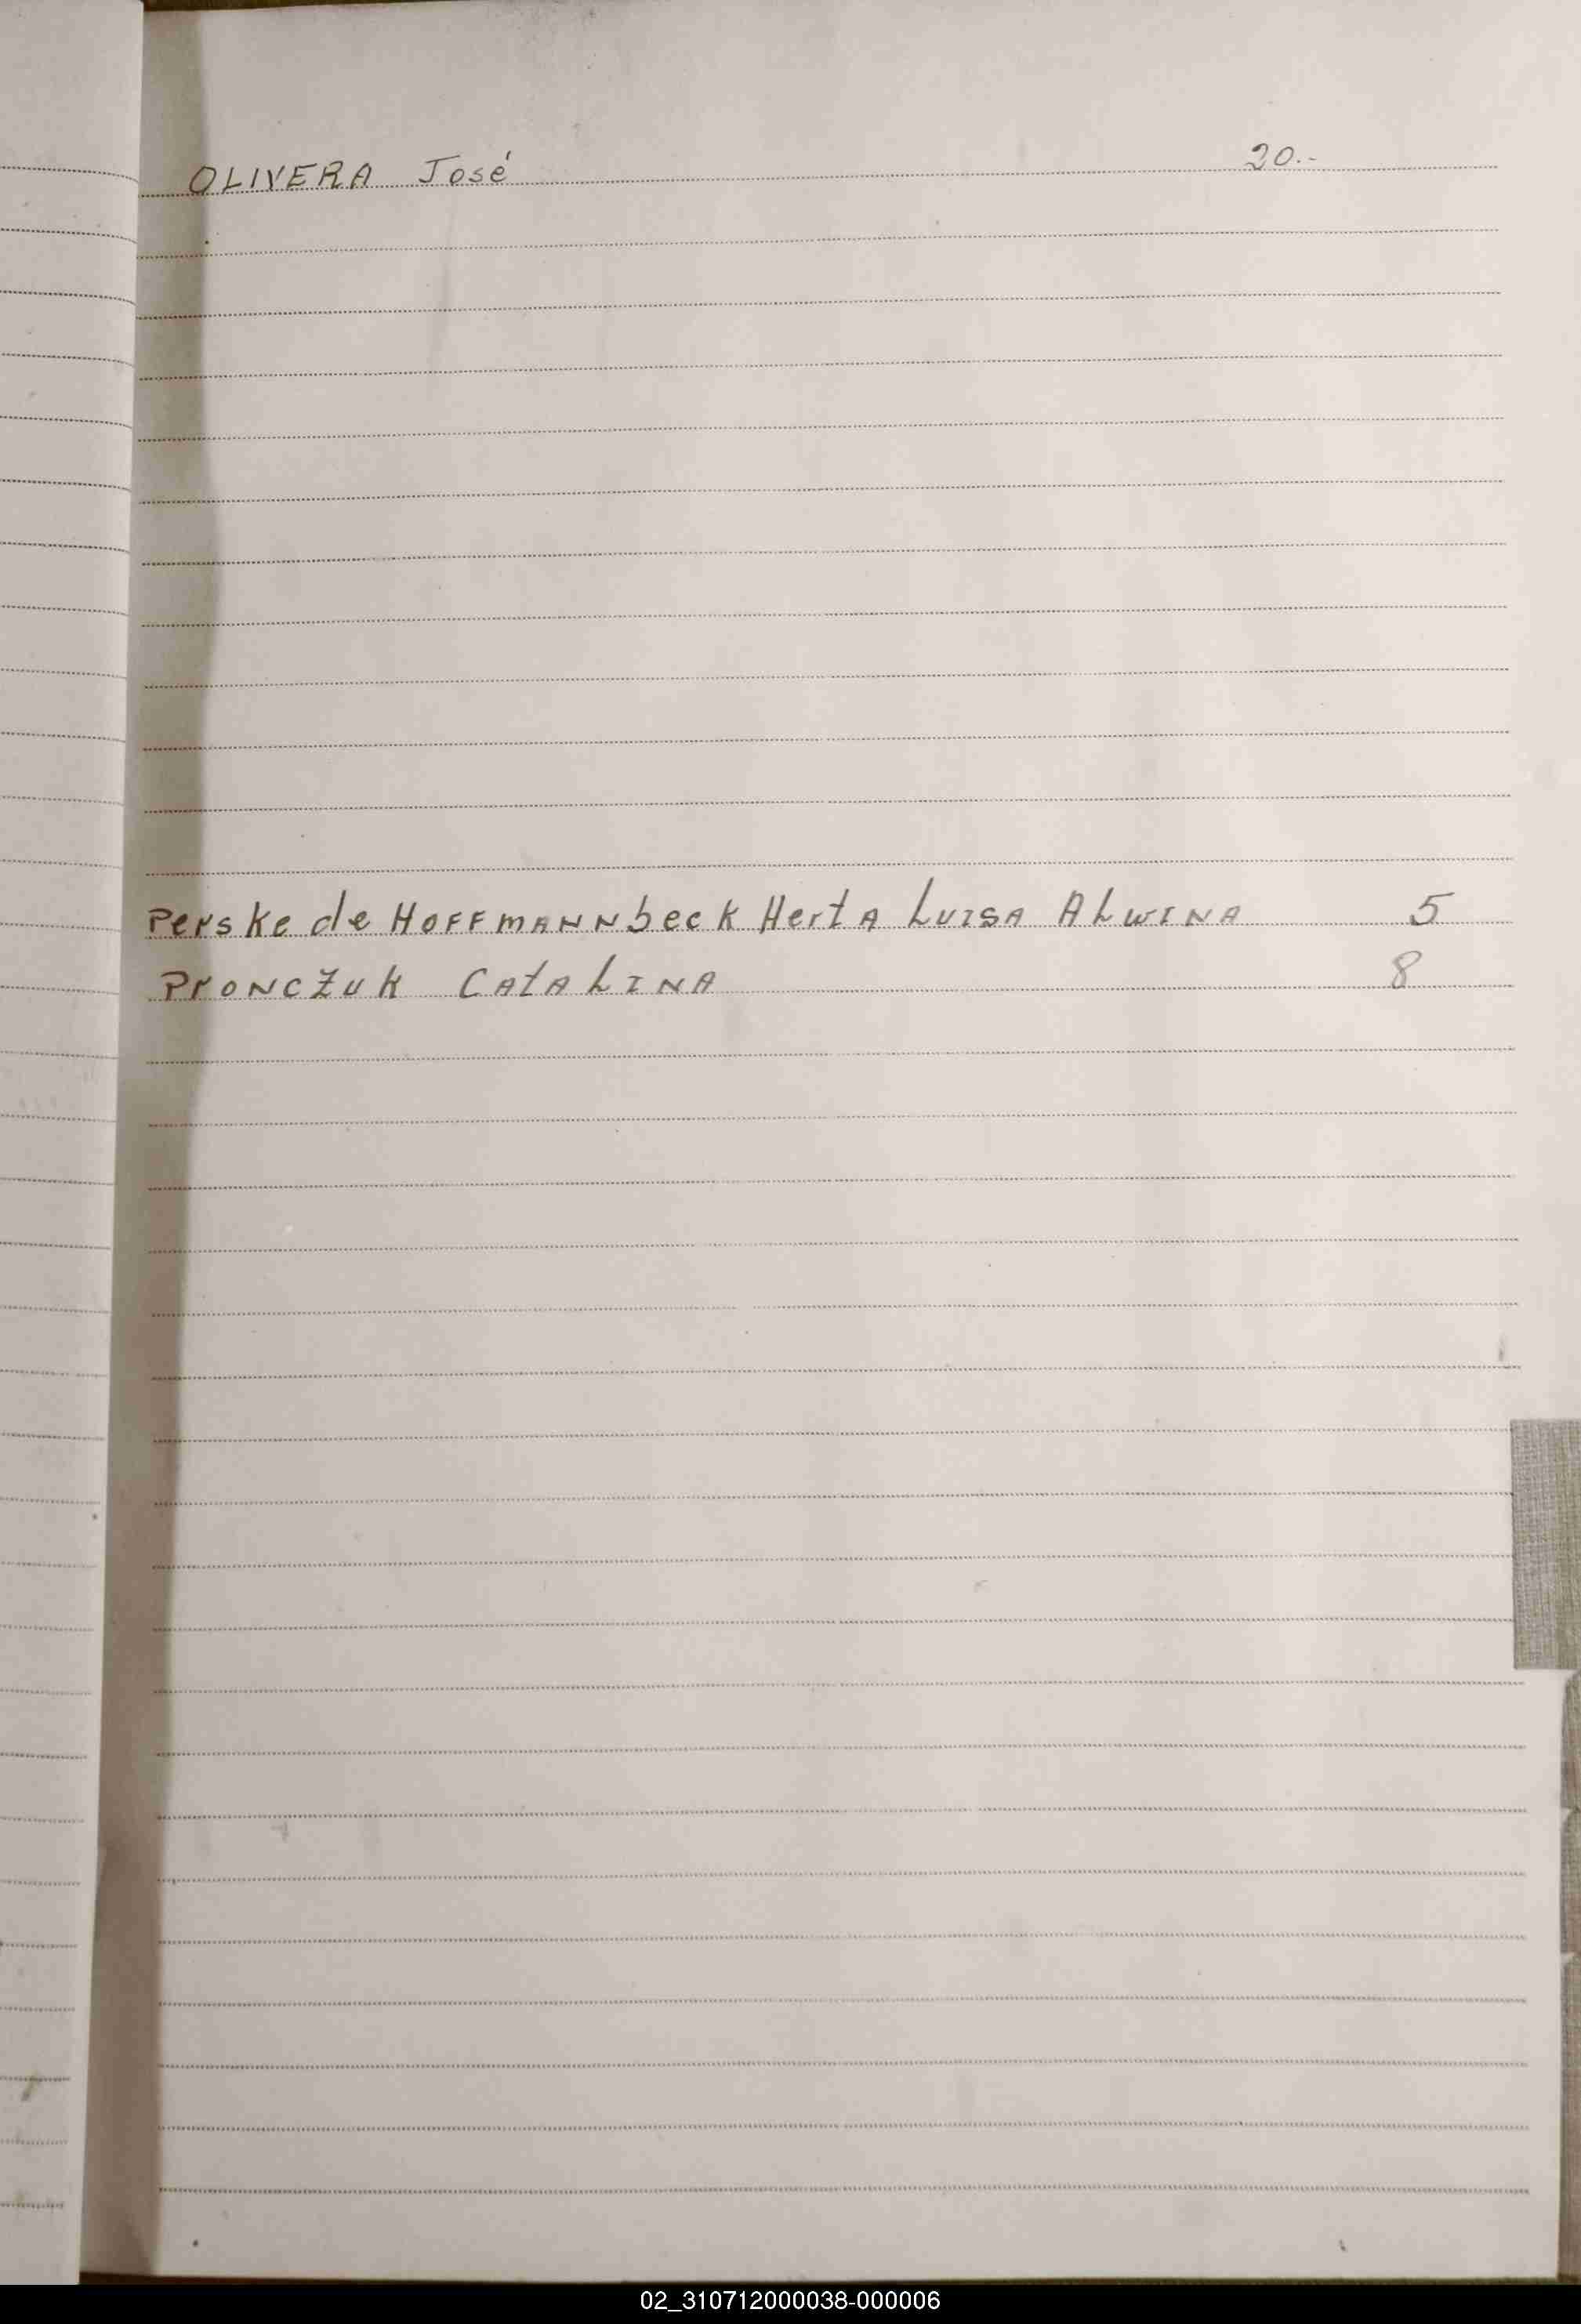 OLIVERA José 20.-
Perske de HOFFMANNbeck HertA LUISA ALWINA 5
PrONCZUK CAtALINA 8
02_310712000038-000006